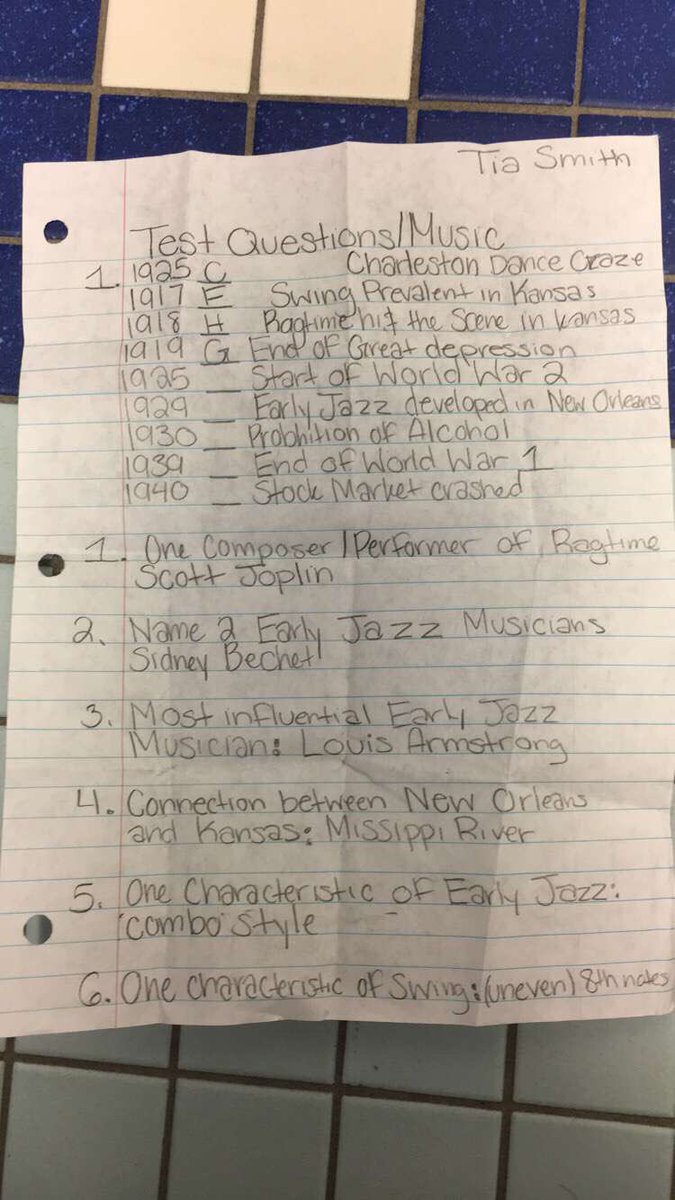 Tia Smith
Test Questions/Music
1. 1925 C Charleston Dance Craze
1917 E Swing Prevalent in Kansas
1918 H Ragtime hit the Scene in kansas
1919 G End of Great depression
1925 _ Start of World War 2
1929 _ Early Jazz developed in New Orleans
1930 _ Probhition of Alcohol
1939 _ End of World War 1
1940 _ Stock Market crashed
1. One Composer/Performer of Ragtime
Scott Joplin
2. Name 2 Early Jazz Musicians
Sidney Bechet
3. Most influential Early Jazz
Musician: Louis Armstrong
4. Connection between New Orleans
and Kansas: Missippi River
5. One Characteristic of Early Jazz:
"combo" Style
6. One characteristic of Swing: (uneven) 8th notes